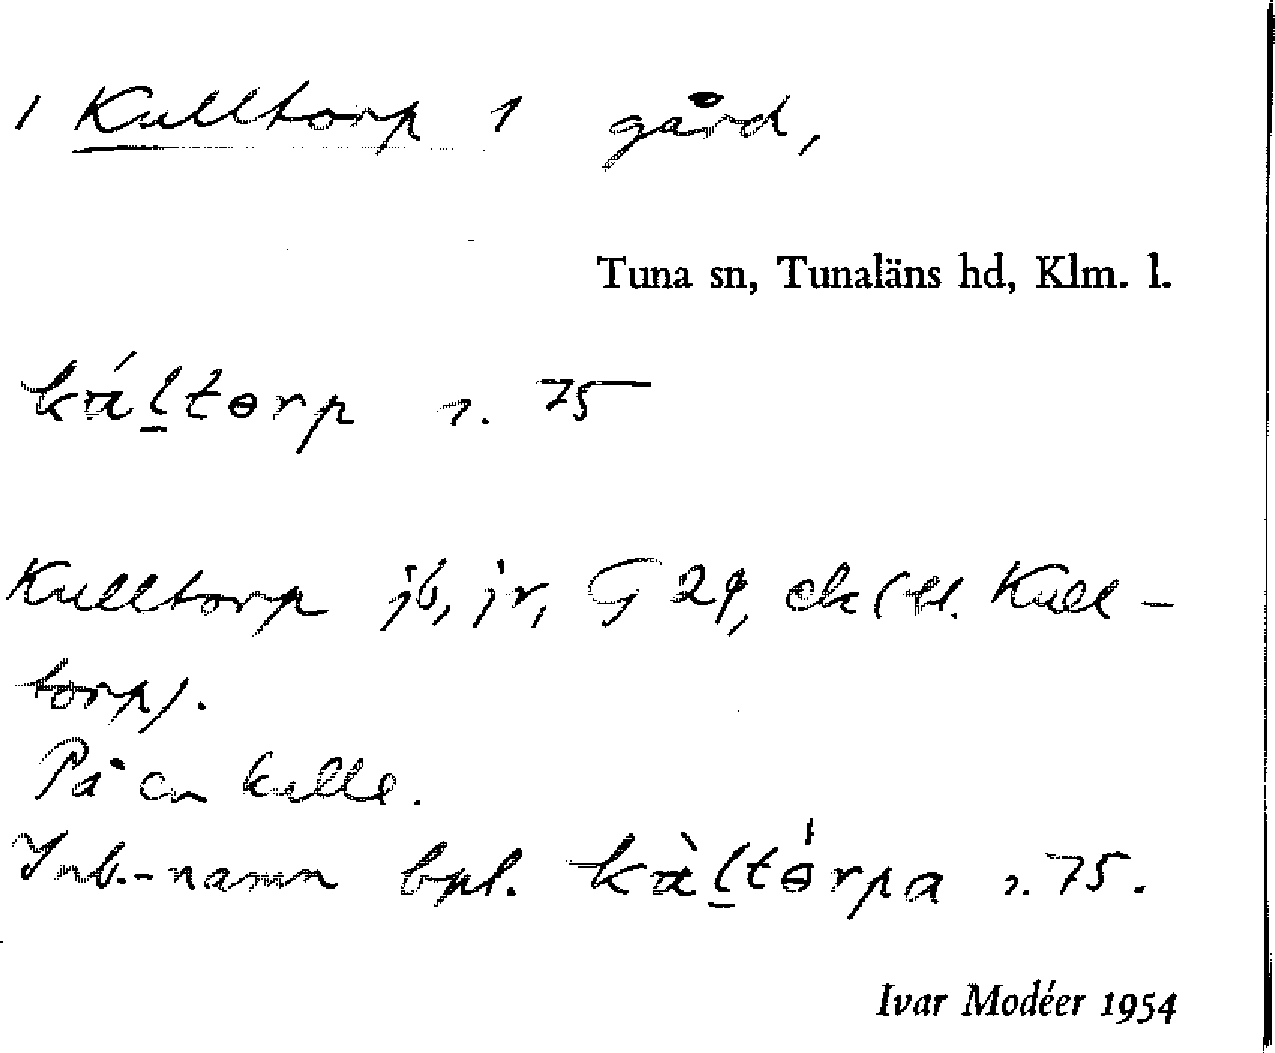 1 Kulltorp 1 gård,
Tuna sn, Tunaläns hd, Klm. l.
káḻtɵrp 2. 75
Kulltorp jb, jr, G 29, ek (H. Kull-
torp).
På en kulle.
Inb.-namn bpl. kàḻtɵ́rpa 2. 75.
Ivar Modéer 1954